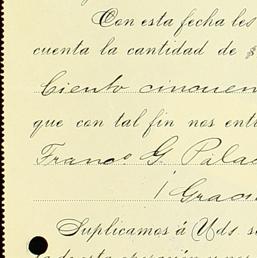 Con esta fecha les
cuenta la cantidad de $
Ciento cincuen
que con tal fin nos ent
Franco G. Palac
Graci
Suplicamos á Uds. s